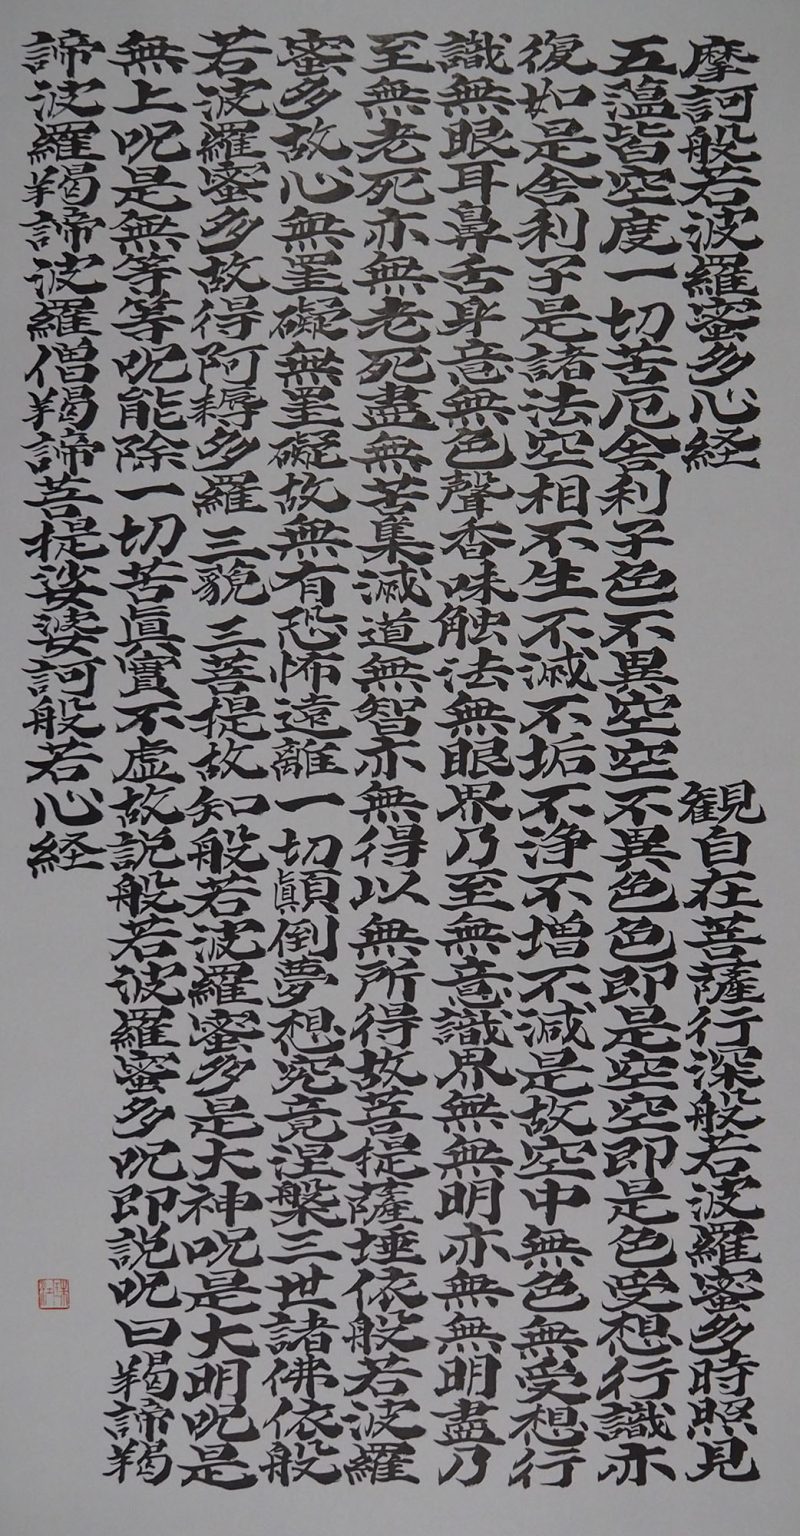 摩訶般若波羅蜜多心経　観自在菩薩行深般若波羅蜜多時照見
五蘊皆空度一切苦厄舎利子色不異空空不異色色即是空空即是色受想行識亦
復如是舎利子是諸法空相不生不滅不垢不浄不増不減是故空中無色無受想行
識無眼耳鼻舌身意無色聲香味触法無眼界乃至無意識界無無明亦無無明盡乃
至無老死亦無老死盡無苦集滅道無智亦無得以無所得故菩提薩埵依般若波羅
蜜多故心無罣礙無罣礙故無有恐怖遠離一切顛倒夢想究竟涅槃三世諸佛依般
若波羅蜜多故得阿耨多羅三藐三菩提故知般若波羅蜜多是大神呪是大明呪是
無上呪是無等等呪能除一切苦眞實不虚故説般若波羅蜜多呪即説呪曰羯諦羯
諦波羅羯諦波羅僧羯諦菩提娑婆訶般若心経